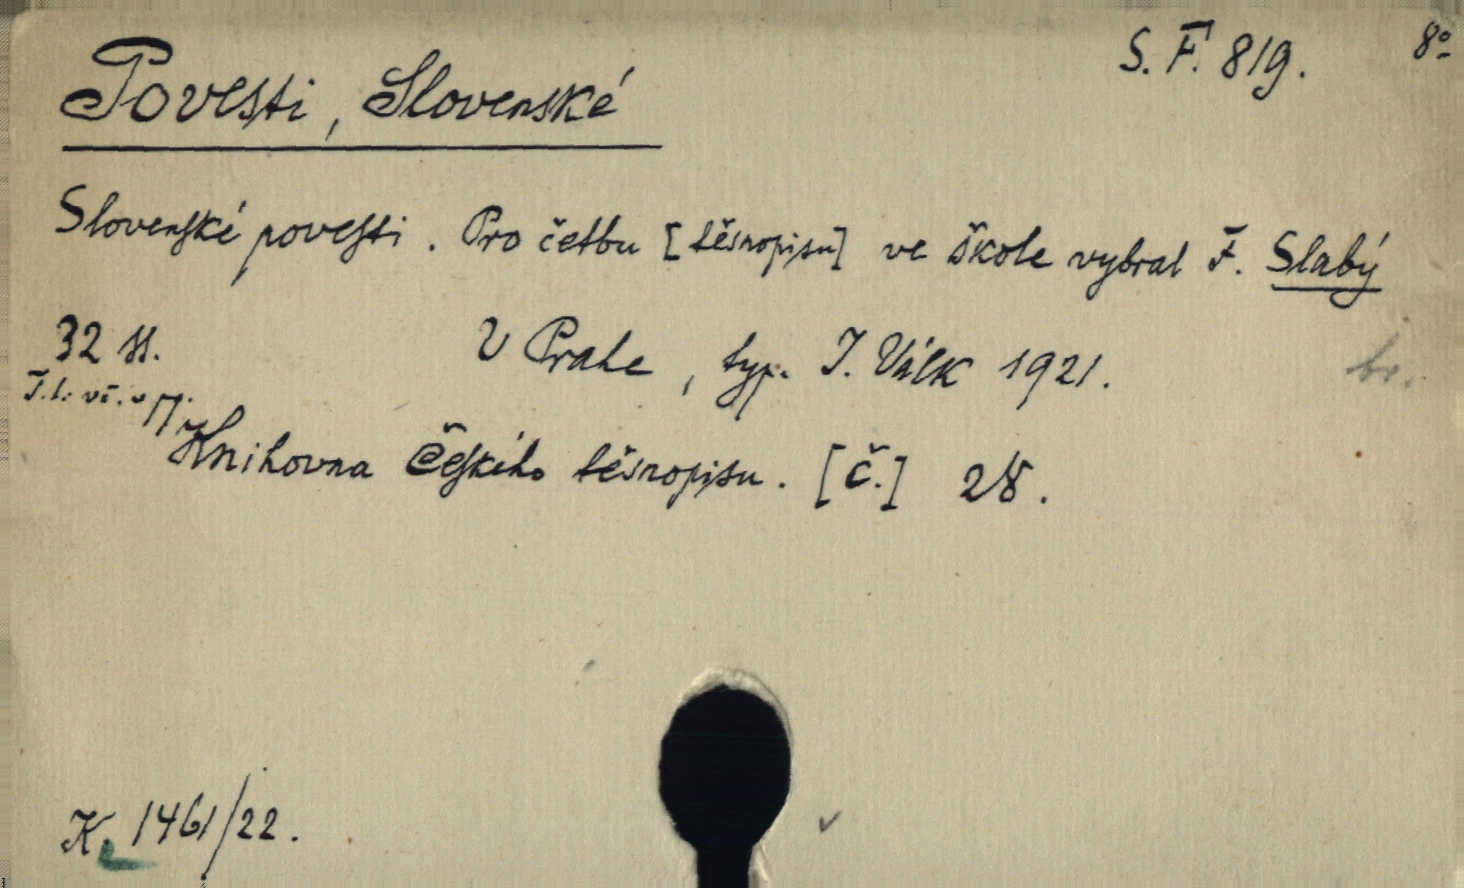 S. F. 819. 8º
Povesti, Slovenské
Slovenské povesti. Pro četbu [těsnopisu] ve škole vybral F. Slabý
32 ss. V Praze, typ. J. Válk 1921.
br.
Knihovna Českého těsnopisu. [č.] 28.
K. 1461/22.